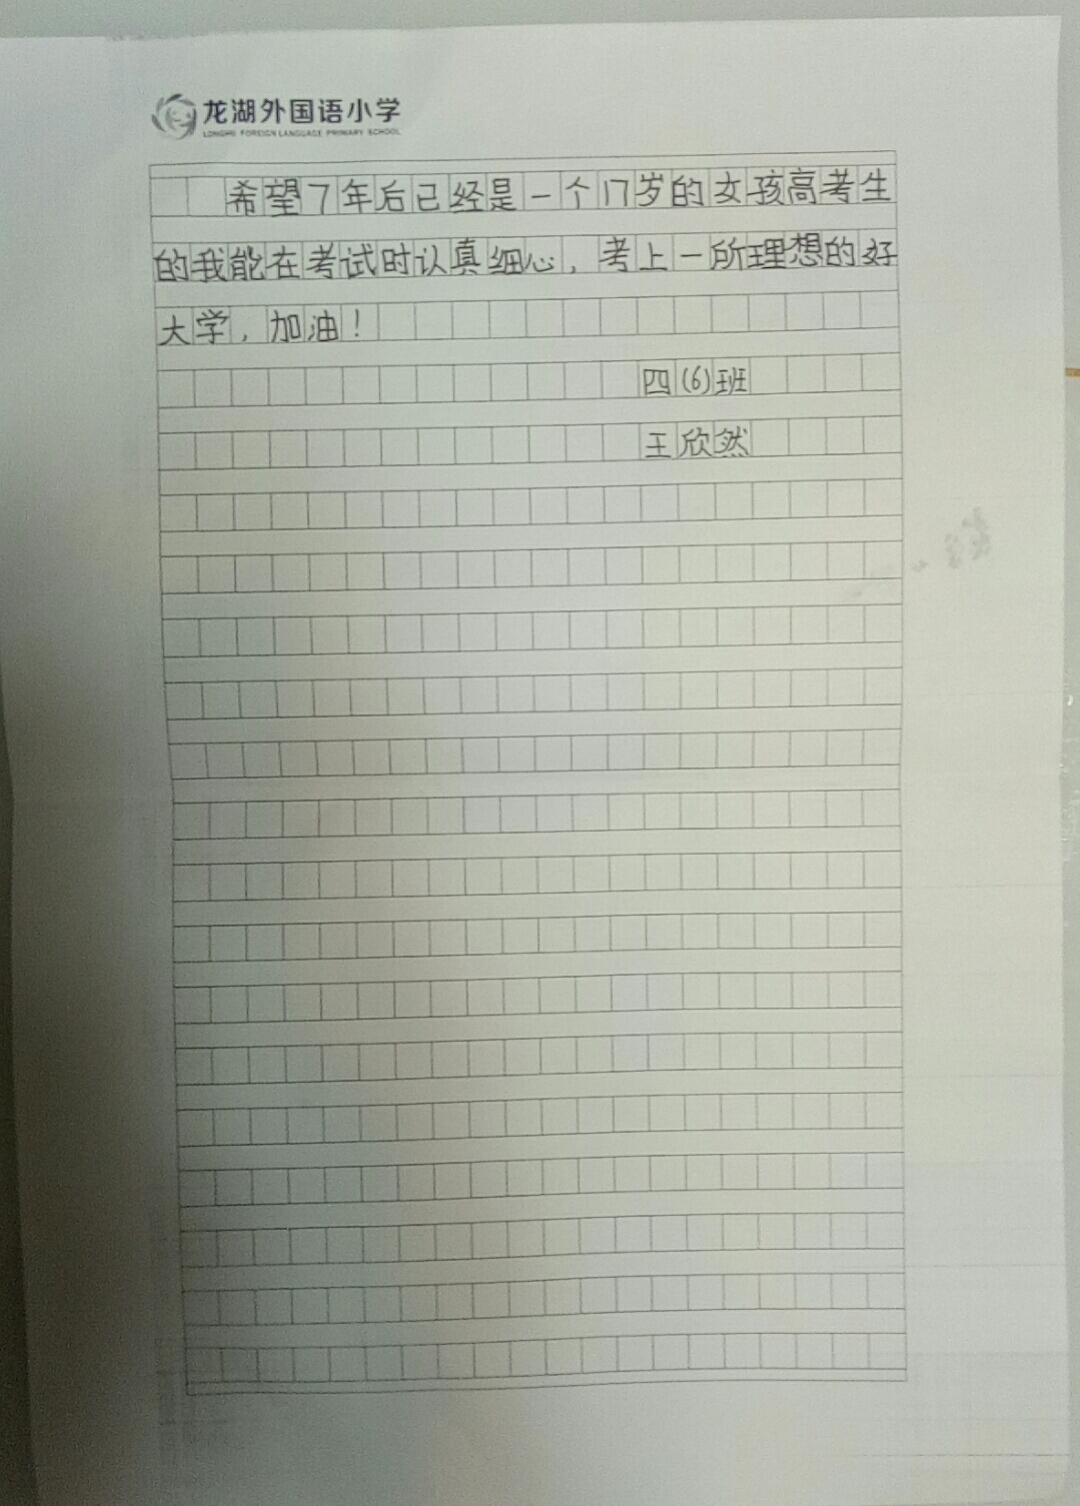 龙湖外国语小学
LONGHU FOREIGN LANGUAGE PRIMARY SCHOOL
希望7年后已经是一个17岁的女孩高考生
的我能在考试时认真细心，考上一所理想的好
大学，加油！
四(6)班
王欣然